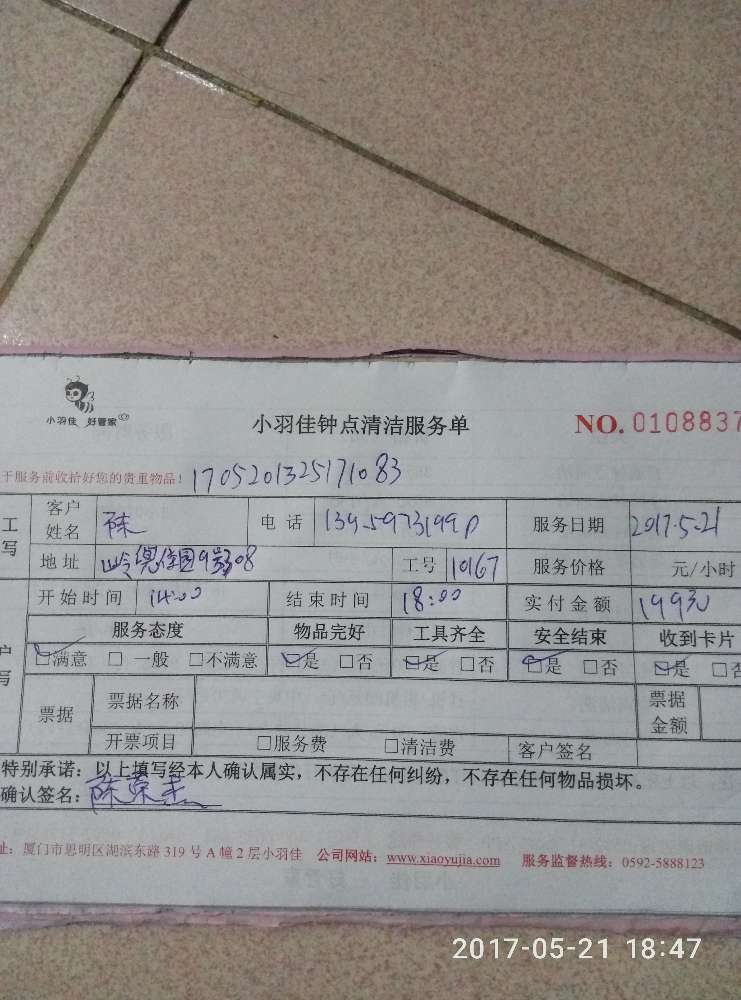 小羽佳 好管家
小羽佳钟点清洁服务单
NO. 0108837
于服务前收拾好您的贵重物品! 1705201325171083
工 客户姓名 陈 电话 服务日期 2017.5.21
写 地址 工号 10167 服务价格 元/小时
开始时间 14:00 结束时间 18:00 实付金额
户 服务态度 物品完好 工具齐全 安全结束 收到卡片
写 ☑满意 □ 一般 □不满意 ☑是 □否 ☑是 □否 ☑是 □否 ☑是 □否
票据 票据名称 票据金额
开票项目 □服务费 □清洁费 客户签名
特别承诺：以上填写经本人确认属实，不存在任何纠纷，不存在任何物品损坏。
确认签名：陈荣杰
址：厦门市思明区湖滨东路 319 号 A 幢 2 层小羽佳 公司网站：www.xiaoyujia.com 服务监督热线：0592-5888123
2017-05-21 18:47